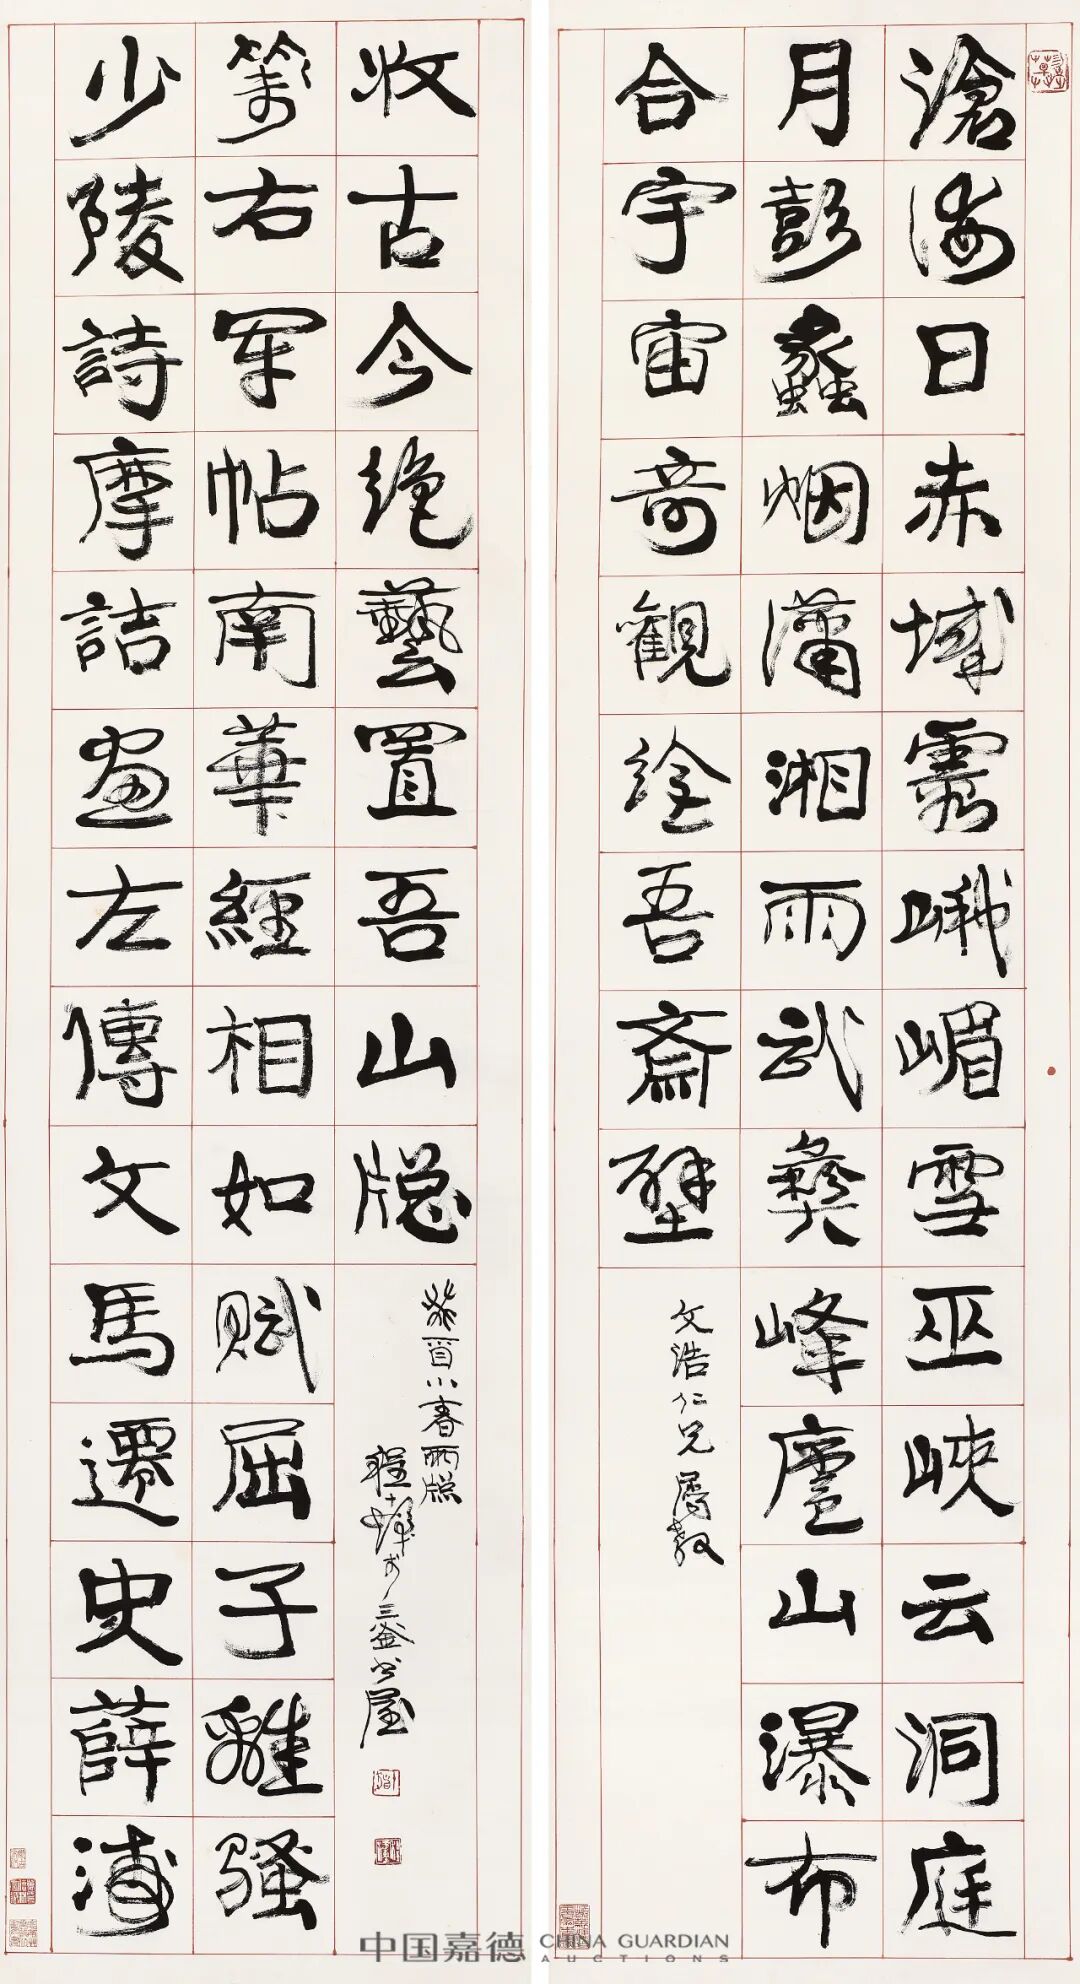 滄海日赤城霞峨嵋雪巫峽云洞庭
月彭蠡烟瀟湘雨武彝峰廬山瀑布
合宇宙奇觀绘吾齋壁
文浩仁兄属教
少陵詩摩詰畫左傳文馬遷史薛濤
箋右軍帖南華經相如賦屈子離騷
收古今绝藝置吾山牕
癸酉小春雨牕
程十髮於三釜书屋
中国嘉德 CHINA GUARDIAN
AUCTIONS